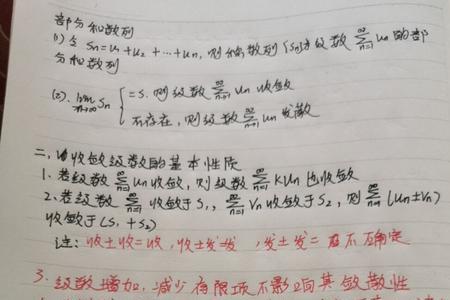 部分和数列
(1) 令 Sn = u1 + u2 + … + un, 则称数列{Sn}为级数 ∑(n=1→∞) un 的部
分和数列
(2). lim(n→∞) Sn { = S. 则级数 ∑(n=1→∞) un 收敛
不存在, 则级数 ∑(n=1→∞) un 发散
二, 收敛级数的基本性质
1. 若级数 ∑(n=1→∞) un 收敛, 则级数 ∑(n=1→∞) kun 也收敛
2. 若级数 ∑(n=1→∞) 收敛于 S1, ∑(n=1→∞) Vn 收敛于 S2, 则 ∑(n=1→∞) (un ± Vn)
收敛于 (S1 + S2)
注: 收±收=收, 收±发=发, 发±发= 不确定
3. 级数增加, 减少有限项不影响其敛散性